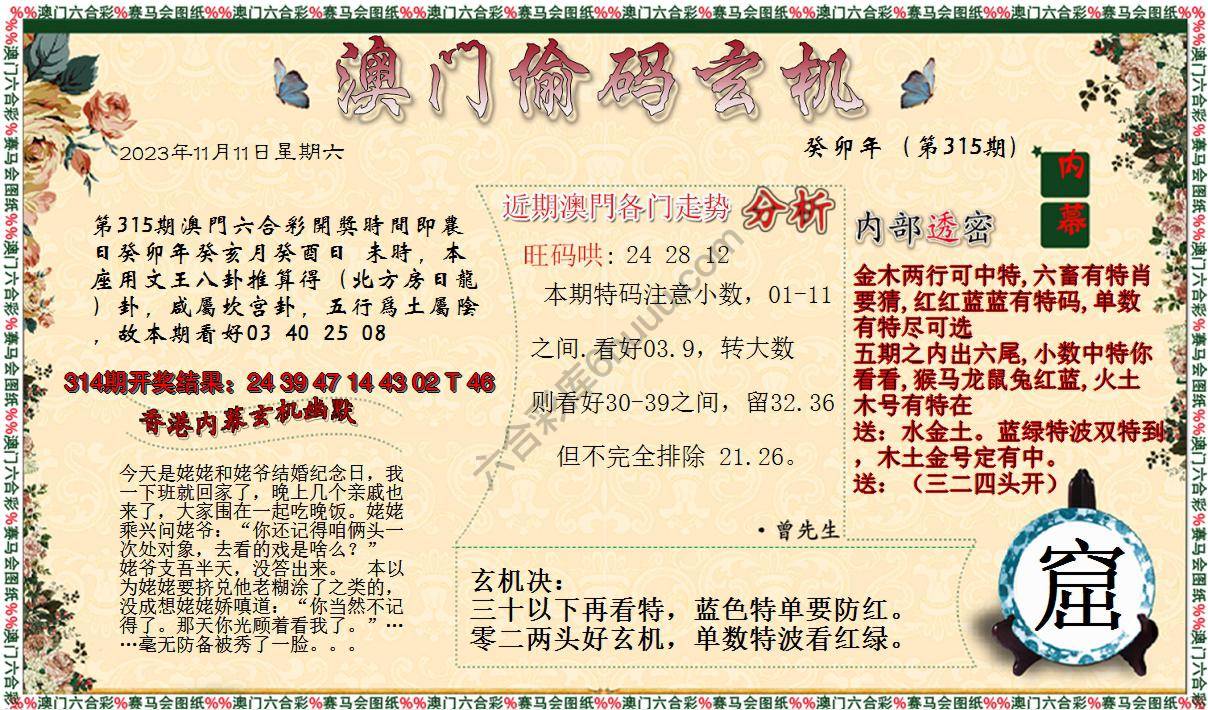 %%澳门六合彩%赛马会图纸%%澳门六合彩%赛马会图纸%%澳门六合彩%赛马会图纸%%澳门六合彩%赛马会图纸%%澳门六合彩%赛马会图纸%%澳门六合彩%赛马会图纸
澳门偷码玄机
2023年11月11日星期六
癸卯年（第315期）
内幕
第315期澳門六合彩開獎時間即農
日癸卯年癸亥月癸酉日 未時，本
座用文王八卦推算得（北方房日龍
）卦，咸屬坎宫卦，五行爲土屬陰
，故本期看好03 40 25 08
314期开奖结果：24 39 47 14 43 02 T 46
香港内幕玄机幽默
今天是姥姥和姥爷结婚纪念日，我
一下班就回家了，晚上几个亲戚也
来了，大家围在一起吃晚饭。姥姥
乘兴问姥爷：“你还记得咱俩头一
次处对象，去看的戏是啥么？”
姥爷支吾半天，没答出来。 本以
为姥姥要挤兑他老糊涂了之类的，
没成想姥姥娇嗔道：“你当然不记
得了。那天你光顾着看我了。”…
…毫无防备被秀了一脸。。。
近期澳門各门走势 分析
旺码哄: 24 28 12
本期特码注意小数，01-11
之间.看好03.9，转大数
则看好30-39之间，留32.36
但不完全排除 21.26。
·曾先生
内部透密
金木两行可中特,六畜有特肖
要猜,红红蓝蓝有特码,单数
有特尽可选
五期之内出六尾,小数中特你
看看,猴马龙鼠兔红蓝,火土
木号有特在
送：水金土。蓝绿特波双特到
，木土金号定有中。
送：（三二四头开）
玄机决：
三十以下再看特，蓝色特单要防红。
零二两头好玄机，单数特波看红绿。
窟